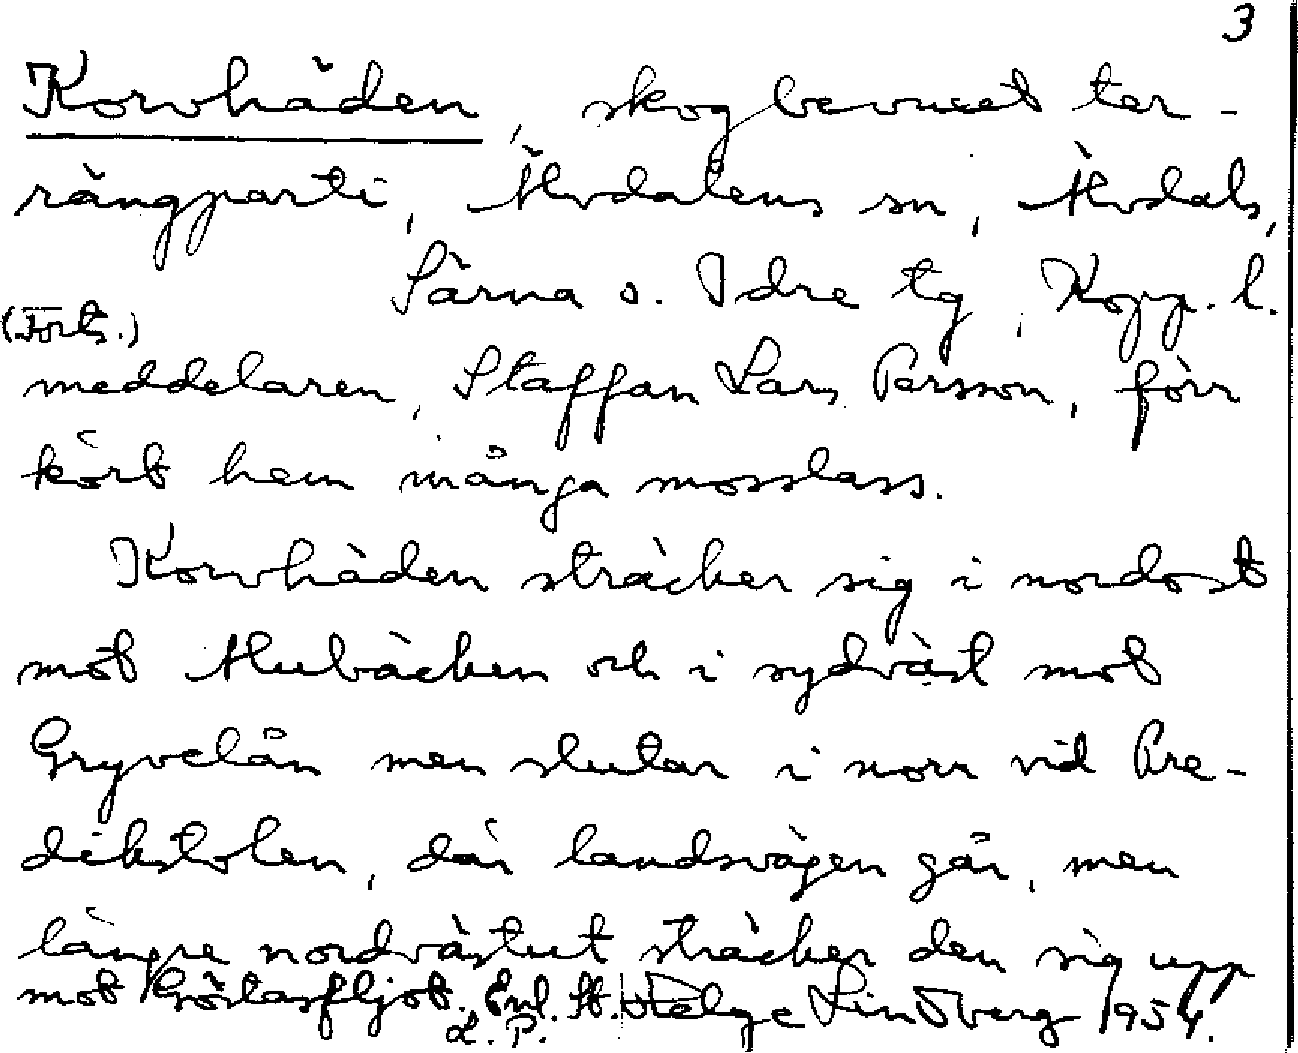 3
Korvhäden, skogbevuxet ter-
rängparti, Älvdalens sn, Älvdals,
Särna o. Idre tg, Kopp. l.
(Forts.)
meddelaren, Staffan Lars Persson, förr
kört hem många mosslass.
Korvhäden sträcker sig i nordost
mot Mubäcken och i sydväst mot
Gryvelån men slutar i norr vid Pre-
dikstolen, där landsvägen går, men
längre nordvästut sträcker den sig upp
mot Görlasfljot. Enl. St. L. P. Helge Lindberg 1954.